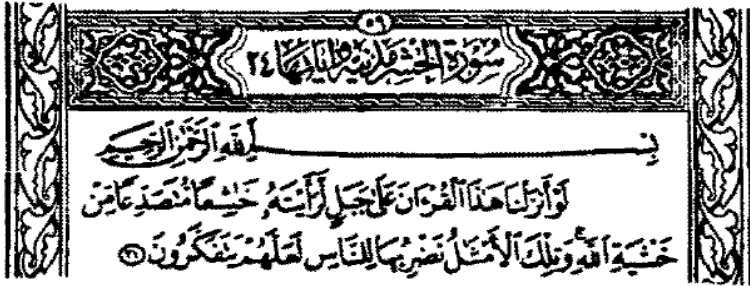 ٥٩
سُورَة الحَشر مَدنية وآياتها ٢٤
بِسْمِ اللَّهِ الرَّحْمَٰنِ الرَّحِيمِ
لَوْ أَنزَلْنَا هَٰذَا الْقُرْآنَ عَلَىٰ جَبَلٍ لَّرَأَيْتَهُ خَاشِعًا مُّتَصَدِّعًا مِّنْ
خَشْيَةِ اللَّهِ وَتِلْكَ الْأَمْثَالُ نَضْرِبُهَا لِلنَّاسِ لَعَلَّهُمْ يَتَفَكَّرُونَ ٢١